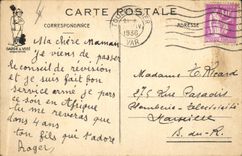 CARTE POSTALE
CORRESPONDANCE
ADRESSE
1936
VAR
Ma chère Maman
Je viens de passer
le conseil de révision
et je suis fait bon
service armé je pars
ce soir en Afrique
tu me reveras
dans 4 mois 4 ans
ton fils qui t'adore
Roger
Madame Ricard
375 Rue Paradis
Plomberie-Electricité
Marseille
B. du-R.